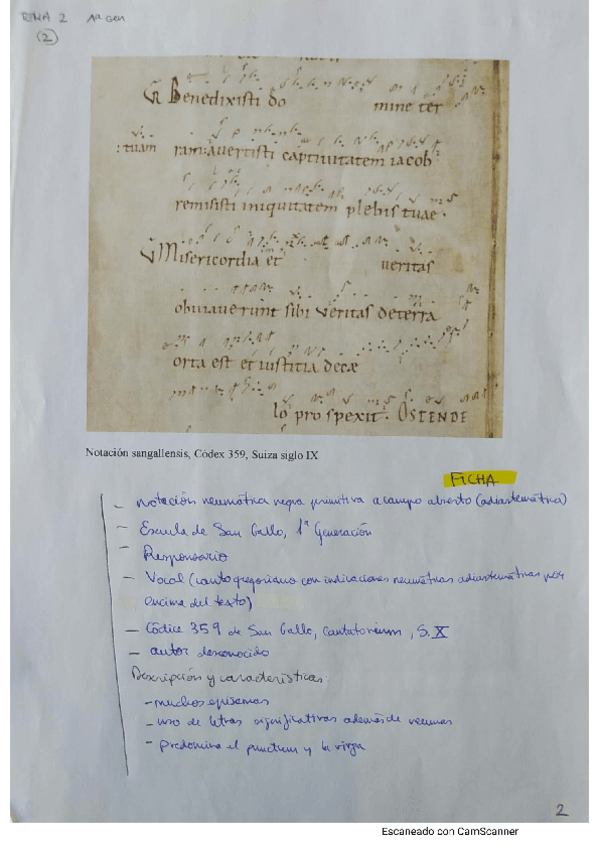 TEMA 2 1ª Gen
(2)
Benedixisti do mine ter
: tuam ram: avertisti captivitatem iacob
remisisti iniquitatem plebis tuae.
Misericordia et veritas
obviaverunt sibi veritas deterra
orta est et iustitia decæ
lo prospexit. OSTENDE
Notación sangallensis, Códex 359, Suiza siglo IX
FICHA
- Notación neumática negra primitiva a campo abierto (adiastemática)
- Escuela de San Gallo, 1ª Generación
- Responsorio
- Vocal (canto gregoriano con indicaciones neumáticas adiastemáticas por
encima del texto)
- Códice 359 de San Gallo, Cantatorium, S. X
- autor desconocido
Descripción y características:
- muchos episemas
- uso de letras significativas además de neumas
- predomina el punctum y la virga
2
Escaneado con CamScanner